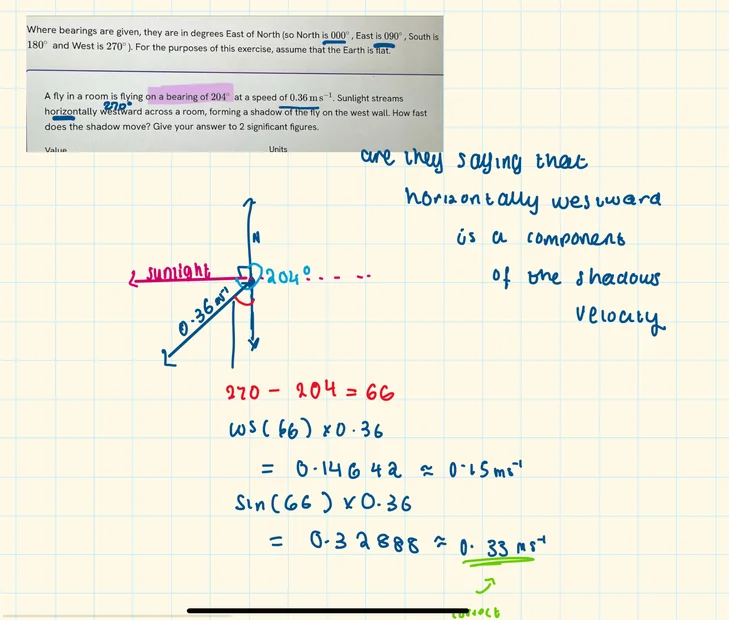 Where bearings are given, they are in degrees East of North (so North is 000°, East is 090°, South is
180° and West is 270°). For the purposes of this exercise, assume that the Earth is flat.
A fly in a room is flying on a bearing of 204° at a speed of 0.36 m s⁻¹. Sunlight streams
270°
horizontally westward across a room, forming a shadow of the fly on the west wall. How fast
does the shadow move? Give your answer to 2 significant figures.
Value Units
are they saying that
horizontally westward
is a component
of the shadows
velocity
N
sunlight
204°
0.36 ms⁻¹
270 - 204 = 66
cos(66) x 0.36
= 0.14642 ≈ 0.15 ms⁻¹
sin(66) x 0.36
= 0.32888 ≈ 0.33 ms⁻¹
correct